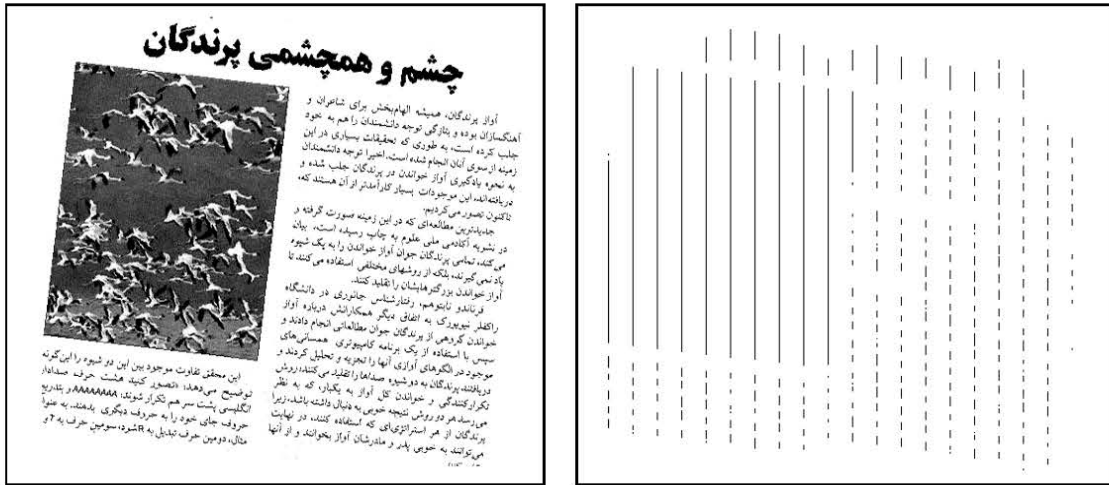 چشم و همچشمی پرندگان
آواز پرندگان، همیشه الهام‌بخش برای شاعران و
آهنگسازان بوده و بتازگی توجه دانشمندان را هم به خود
جلب کرده است، به طوری که تحقیقات بسیاری در این
زمینه از سوی آنان انجام شده است. اخیرا توجه دانشمندان
به نحوه یادگیری آواز خواندن در پرندگان جلب شده و
دریافته‌اند، این موجودات بسیار کارآمدتر از آن هستند که،
تاکنون تصور می‌کردیم.
جدیدترین مطالعه‌ای که در این زمینه صورت گرفته و
در نشریه آکادمی ملی علوم به چاپ رسیده است، بیان
می‌کند، تمامی پرندگان جوان آواز خواندن را به یک شیوه
یاد نمی‌گیرند، بلکه از روشهای مختلفی استفاده می‌کنند تا
آواز خواندن بزرگترهایشان را تقلید کنند.
فرناندو نابتوهم، رفتارشناس جانوری در دانشگاه
راکفلر نیویورک به اتفاق دیگر همکارانش درباره آواز
خواندن گروهی از پرندگان جوان مطالعاتی انجام دادند و
سپس با استفاده از یک برنامه کامپیوتری همسانی‌های
موجود در الگوهای آوازی آنها را تجزیه و تحلیل کردند و
دریافتند پرندگان به دو شیوه صداها را تقلید می‌کنند، روش
تکرارکنندگی و خواندن کل آواز به یکبار، که به نظر
می‌رسد هر دو روش نتیجه خوبی به دنبال داشته باشد، زیرا
پرندگان از هر استراتژی‌ای که استفاده کنند، در نهایت
می‌توانند به خوبی پدر و مادرشان آواز بخوانند و از آنها
این محقق تفاوت موجود بین این دو شیوه را این‌گونه
توضیح می‌دهد: «تصور کنید هشت حرف صدادار
انگلیسی پشت سر هم تکرار شوند؛ AAAAAAAA و بتدریج
حروف جای خود را به حروف دیگری بدهند. به عنوان
مثال، دومین حرف تبدیل به R شود، سومین حرف به ? و